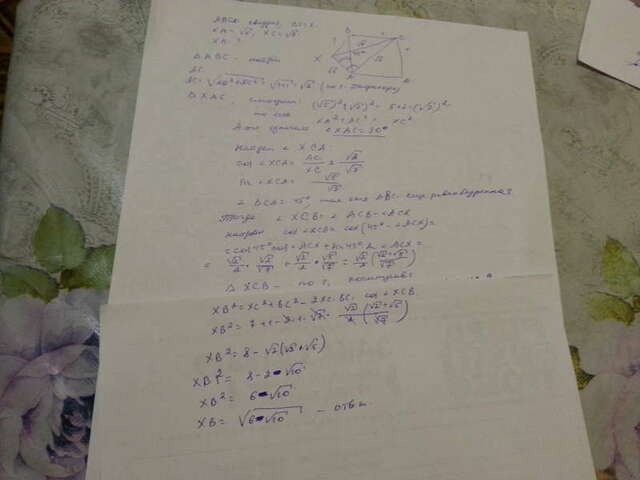 ABCD квадрат, BC=1.
XA=√5, XC=√7
XB-?
ΔABC - найти
AC.
AC=√AB²+BC²=√1+1=√2 (по т. Пифагора)
ΔXAC. (√5)²+(√2)²=5+2=(√7)²
то есть XA²+AC²=XC²
∠XAC=90°
Найдем ∠XCA:
cos∠XCA=AC/XC=√2/√7
sin∠XCA=√5/√7
∠BCA=45° так как ABC
Тогда ∠XCB=∠ACB-∠ACX
Найдем cos∠XCB=cos(45°-∠ACX)=
=cos45°cos∠ACX+sin45°sin∠ACX=
=√2/2·√2/√7+√2/2·√5/√7=√2/2(√2+√5/√7)
ΔXCB - по т. косинусов
XB²=XC²+BC²-2XC·BC·cos∠XCB
XB²=7+1-2·1·√7·√2/2(√2+√5/√7)
XB²=8-√2(√2+√5)
XB²=8-2-√10
XB²=6-√10
XB=√6-√10 - ответ.